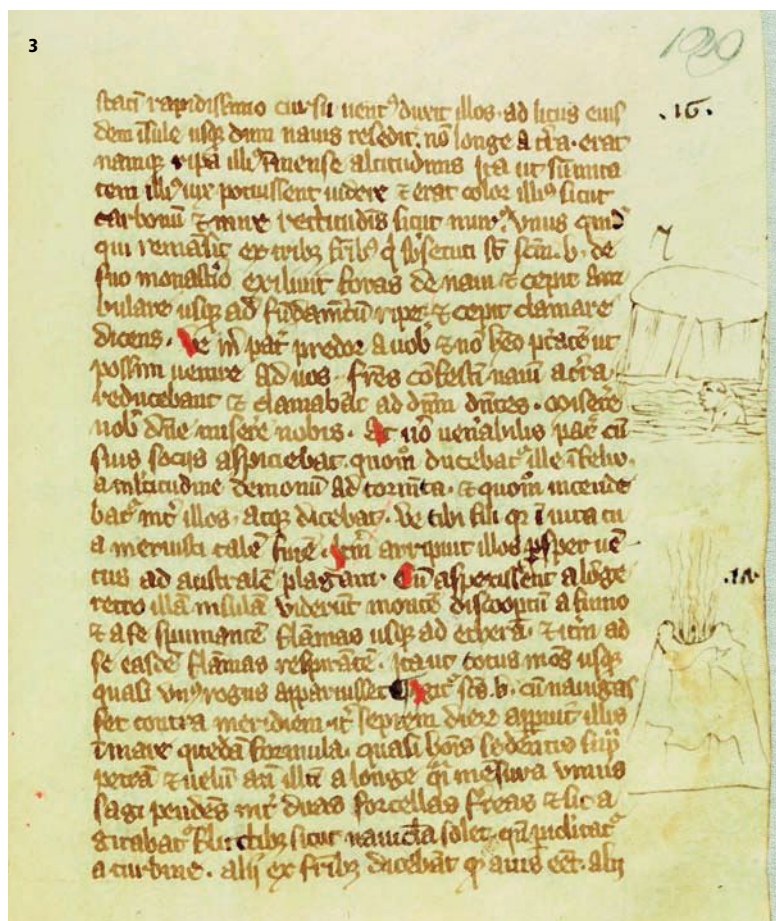 3
129
statī rapidissimo cursu uent⁹ duxit illos · ad litus eius
.16.
dem īsule usq; dum nauis resedit. nō longe a t̄ra · erat
namq; ripa illi⁹ altitudinis Ita ut sūmita
tem illi⁹ uix potuissent uidere ⁊ erat color illi⁹ sicut
carbonū ⁊ mire rectitudīs sicut mur⁹. Vnus
qui remāsit ex trib; fr̄ib⁹ q̄ s̄t sc̄m . b . de
suo monast̄io exiliuit foras de naui ⁊ cepit am
bulare usq; ad fūdam̄tū ripe · ⁊ cepit clamare
dicens · Ve m̄ pat̄ predor a uob̄ ⁊ nō h̄eo p̄tatē ut
possim uenire ad uos · fr̄es cōfestī nauī a t̄ra
reducebant ⁊ clamabāt ad dn̄m dn̄tes · Misere
nob̄ dn̄e misere nobis · At u̅o uen̄abilis pat̄ cū
suis sociis aspiciebat quom̄ ducebat᷑ ille īfelix
a multitudine demonū ad torm̄ta · ⁊ quom̄ incende
bat᷑ int̄ illos · atq; dicebat · Ve tibi fili qr̄ ī uita tu
a meruisti talē finē · It̄m arripuit illos ꝓsper uē
tus ad australē plagam · Cū aspexissent a lōge
.17.
retro illā insulā viderūt montē discoop̄tū a fumo
⁊ a se spumantē flāmas usq; ad etherā · ⁊ it̄m ad
se easdē flāmas respirātē · Ita ut totus mōs usq;
quasi vn⁹ rogus apparuisset sc̄s . b . cū nauigas
set contra meridiem · it̄ septem diere apparuit illis
ī mare quedā formula · quasi hōīs sedentis sup̄
petrā ⁊ uelū an̄ illū a longe mēsura vnius
sagi pendēs int̄ duas forcellas f̄reas ⁊ sic a
gitabat᷑ fluctib; sicut nauicl̄a solet · qn̄ piclitat᷑
a turbine · alii ex fr̄ib; dicebāt qᷓ auis eēt · alii